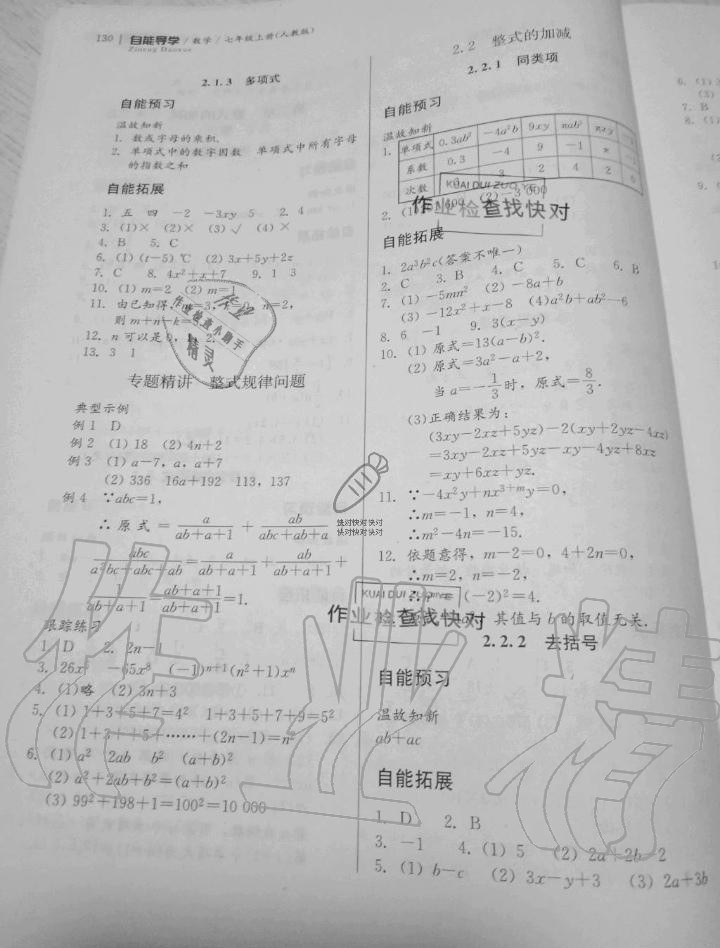 130 | 自能导学 / 数学 / 七年级上册(人教版)
Zineng Daoxue
2.1.3 多项式
自能预习
温故知新
1. 数或字母的乘积.
2. 单项式中的数字因数 单项式中所有字母
的指数之和
自能拓展
1. 五 四 −2 −3xy 5 2. 4
3. (1)× (2)× (3)√ (4)×
4. B 5. C
6. (1)(t−5) ℃ (2) 3x+5y+2z
7. C 8. 4x²+x+7 9. 1 3
10. (1) m=2 (2) m=1
11. 由已知得, =3, n=2,
则 m+n−k=
12. n 可以是 0, 1, 2.
13. 3 1
专题精讲 整式规律问题
典型示例
例 1 D
例 2 (1) 18 (2) 4n+2
例 3 (1) a−7, a, a+7
(2) 336 16a+192 113, 137
例 4 ∵abc=1,
∴ 原式 = a/(ab+a+1) + ab/(abc+ab+a) +
abc/(a²bc+abc+ab) = a/(ab+a+1) + ab/(ab+a+1) +
1/(ab+a+1) = (ab+a+1)/(ab+a+1) = 1.
跟踪练习
1. D 2. 2n−1
3. 26x⁵ −65x⁸ (−1)ⁿ⁺¹(n²+1)xⁿ
4. (1)略 (2) 3n+3
5. (1) 1+3+5+7=4² 1+3+5+7+9=5²
(2) 1+3++5+……+(2n−1)=n²
6. (1) a² 2ab b² (a+b)²
(2) a²+2ab+b²=(a+b)²
(3) 99²+198+1=100²=10 000
2.2 整式的加减
2.2.1 同类项
自能预习
温故知新
1. 单项式 0.3ab² −4a²b 9xy πab³
系数 0.3 −4 9 −1 π −1
次数 3 2 4 2
2. (1) (2) −3 000
自能拓展
1. 2a³b²c(答案不唯一)
2. C 3. B 4. C 5. C 6. B
7. (1) −5mn² (2) −8a+b
(3) −12x²+x−8 (4) a²b+ab²−6
8. 6 −1 9. 3(x−y)
10. (1) 原式=13(a−b)².
(2) 原式=3a²−a+2,
当 a=−1/3 时, 原式=8/3.
(3)正确结果为:
(3xy−2xz+5yz)−2(xy+2yz−4xz)
=3xy−2xz+5yz−xy−4yz+8xz
=xy+6xz+yz.
11. ∵−4x²y+nx³⁺ᵐy=0,
∴m=−1, n=4,
∴m²−4n=−15.
12. 依题意得, m−2=0, 4+2n=0,
∴m=2, n=−2,
(−2)²=4.
其值与 b 的取值无关.
2.2.2 去括号
自能预习
温故知新
ab+ac
自能拓展
1. D 2. B
3. −1 4. (1) 5 (2) 2a+2b−2
5. (1) b−c (2) 3x−y+3 (3) 2a+3b
KUAI DUI ZUO YE
作业检查找快对
作业检查小助手
作业
精灵
快对快对快对
快对快对快对
KUAI DUI ZUO
作业检查找快对
作业精